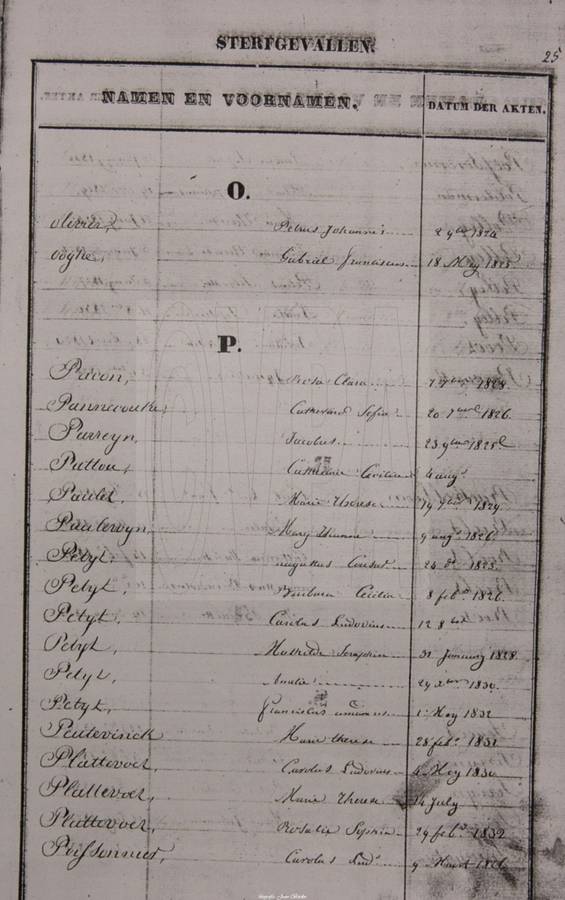 STERFGEVALLEN.
25
NAMEN EN VOORNAMEN.
DATUM DER AKTEN.
O.
Olivier, Petrus Johannes 2 9bre 1824
Ooghe, Gabriel Franciscus 18 Mey 1825
P.
Pacon, Rosa Clara 1828
Pannecoucke, Catherine Sofie 20 1826
Parreyn, Jacobus 23 9bre 1825
Pattou, Catherine Cecilia 4 augt
Paulet, Marie Therese 19 1829
Pauterzyn, Mary 9 augt 1826
Petyt, Augustus 24 1825
Petyt, Barbara Cecilia 8 feb. 1826
Petyt, Carolus Ludovicus 12 8bre
Petyt, Mathilde Seraphine 31 January 1828
Petyt, Amelie 29 xbre 1830
Petyt, Franciscus 1 Mey 1832
Peutevinck Marie Therese 28 feb. 1831
Plattevoet, Carolus Ludovicus 4 Mey 1830
Plattevoet, Marie Therese 14 July
Plattevoet, Rosalie Sophie 29 feb. 1832
Poissonnier, Carolus Lud. 9 Maart 1826